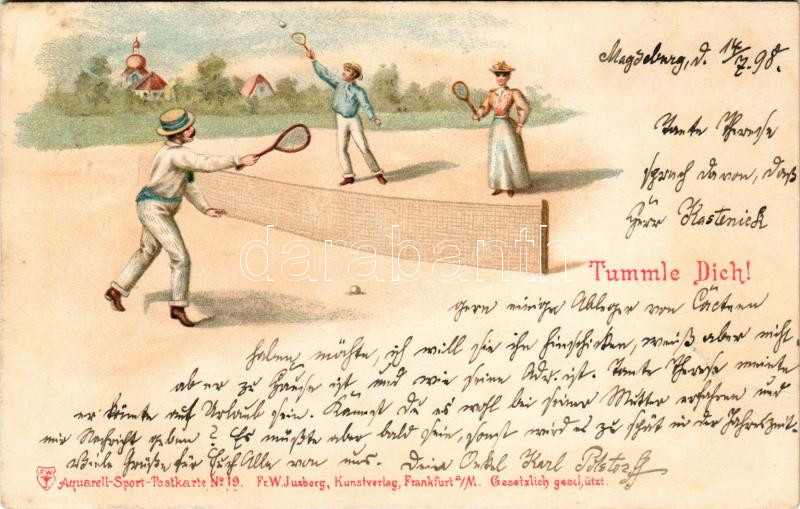 Magdeburg, d. 14/7. 98.
Tante Therese
sprach davon, daß
Herr Kastenick
Tummle Dich!
gern einige Ableger von Cacteen
haben möchte, ich will sie ihn hinschicken, weiß aber nicht
ob er zu Hause ist und wie seine Adr. ist. Tante Therese meinte
er könnte auf Urlaub sein. Kannst Du es wohl bei seiner Mutter erfahren und
mir Nachricht geben? Es müßte aber bald sein, sonst wird es zu spät in der Jahreszeit.
Viele Grüße für Euch Alle von uns. Dein Onkel Karl
darabanth
F.W.
Aquarell-Sport-Postkarte No 19. Fr. W. Juxberg, Kunstverlag, Frankfurt a/M. Gesetzlich gesch ützt.